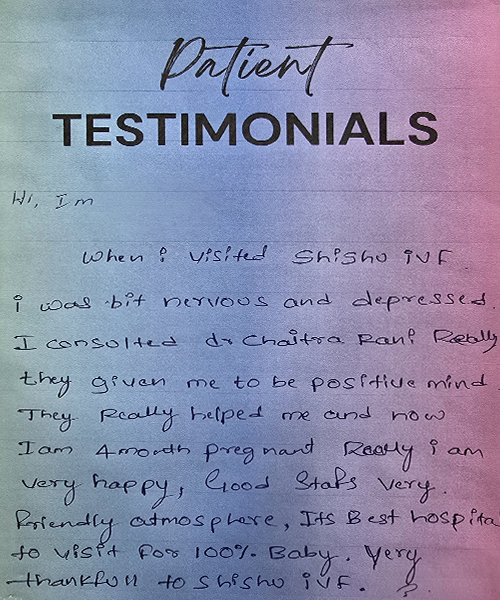 Patient
TESTIMONIALS
Hi, Im
When i visited Shishu iVF
i was bit nervous and depressed
I consulted dr Chaitra Rani Really
they given me to be positive mind
They Really helped me and now
Iam 4month pregnant Really i am
very happy, Good Stafs very.
friendly atmosphere, Its Best hospita
to visit for 100% Baby. Very
thankfull to Shishu iVF.